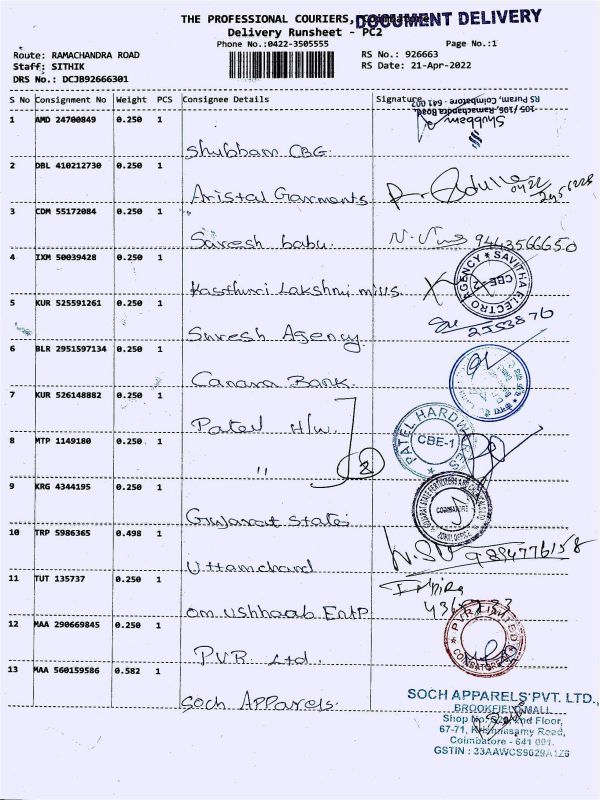 THE PROFESSIONAL COURIERS, Coimbatore
DOCUMENT DELIVERY
Delivery Runsheet - PC2
Phone No.:0422-3505555
Page No.:1
Route: RAMACHANDRA ROAD
RS No.: 926663
Staff: SITHIK
RS Date: 21-Apr-2022
DRS No.: DCJB92666301
S No Consignment No Weight PCS Consignee Details Signature
Shubbam
105/106, Ramachandra Road,
RS Puram, Coimbatore - 641 002
1 AMD 24700849 0.250 1
Shubbam CBG
2 DBL 410212730 0.250 1
Aristal Garments
3 CDM 55172084 0.250 1
Suresh babu 9443566650
4 IXM 50039428 0.250 1
Kasthuri Lakshmi mills
SAVITHA ELECTRO AGENCY
CBE-2
5 KUR 525591261 0.250 1
Suresh Agency
6 BLR 2951597134 0.250 1
Canara Bank
7 KUR 526148882 0.250 1
Patel H/w
PATEL HARDWARES
CBE-1
8 MTP 1149180 0.250 1
" 2
9 KRG 4344195 0.250 1
Gujarat State
COIMBATORE
10 TRP 5986365 0.498 1
Uttamchand 9894776158
11 TUT 135737 0.250 1
om ushhaab Entp
12 MAA 290669845 0.250 1
PVR Ltd.
PVR LIMITED
COIMBATORE
13 MAA 560159586 0.582 1
Soch Apparels
SOCH APPARELS PVT. LTD.,
BROOKFIELD MALL
Shop No. Floor,
67-71, Krishnasamy Road,
Coimbatore - 641 001.
GSTIN : 33AAWCS9629A1Z6